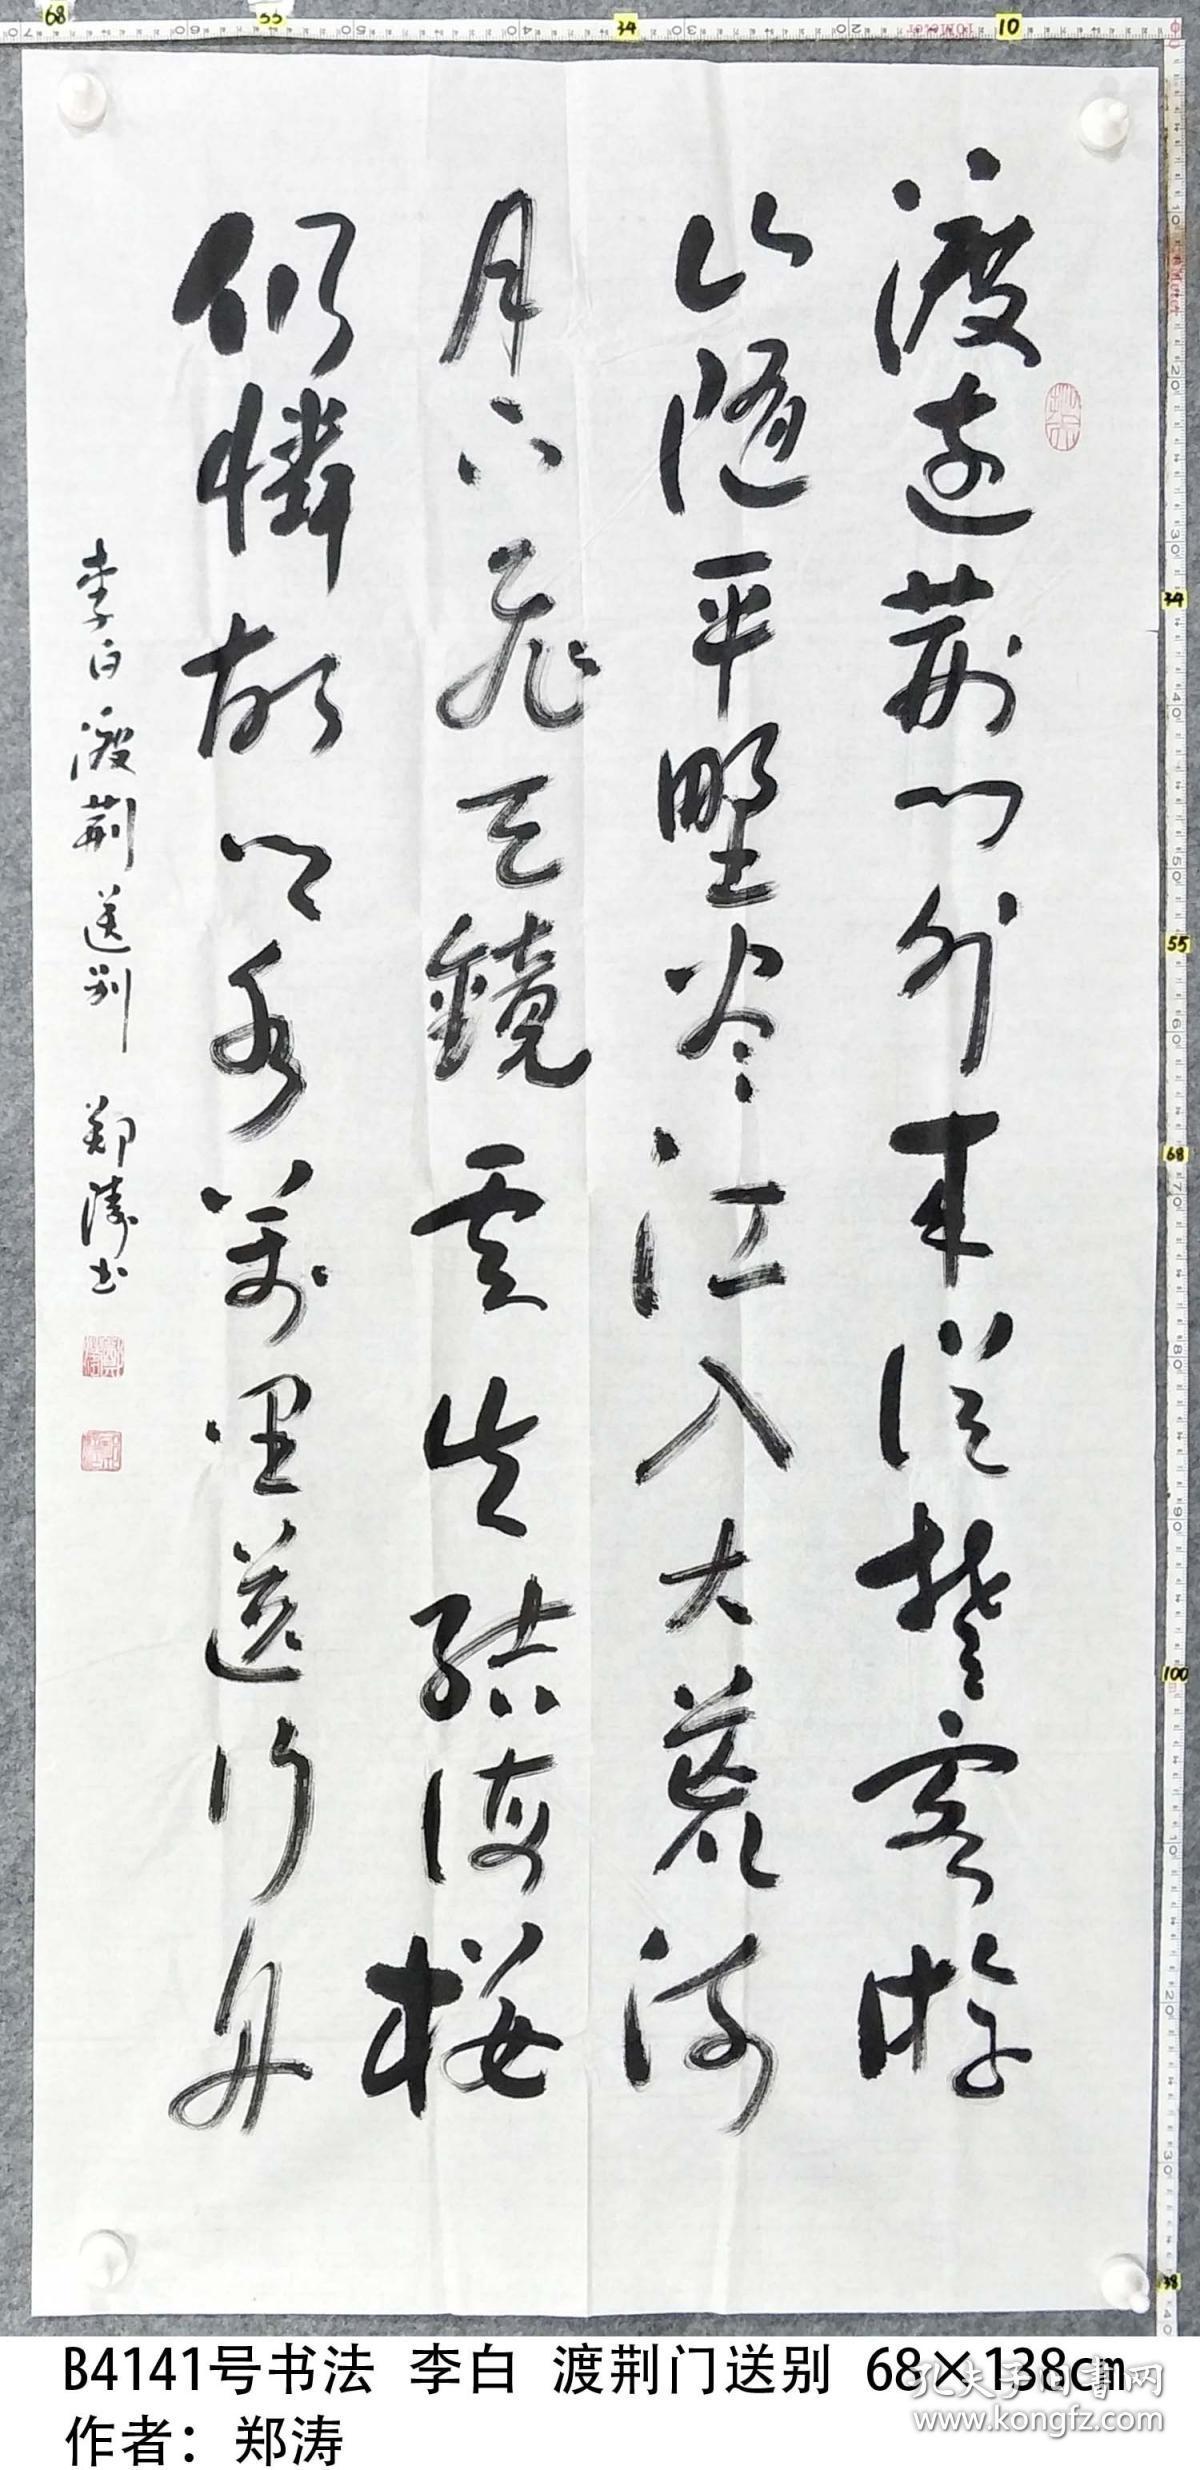 68 55 34 10
渡远荆门外来从楚客游
山随平野尽江入大荒流
月下飞天鏡云生结海楼
仍憐故乡水万里送行舟
李白渡荆送别 郑涛书
34
55
68
100
38
B4141号书法 李白 渡荆门送别 68×138cm
作者：郑涛
孔夫子旧书网
www.kongfz.com